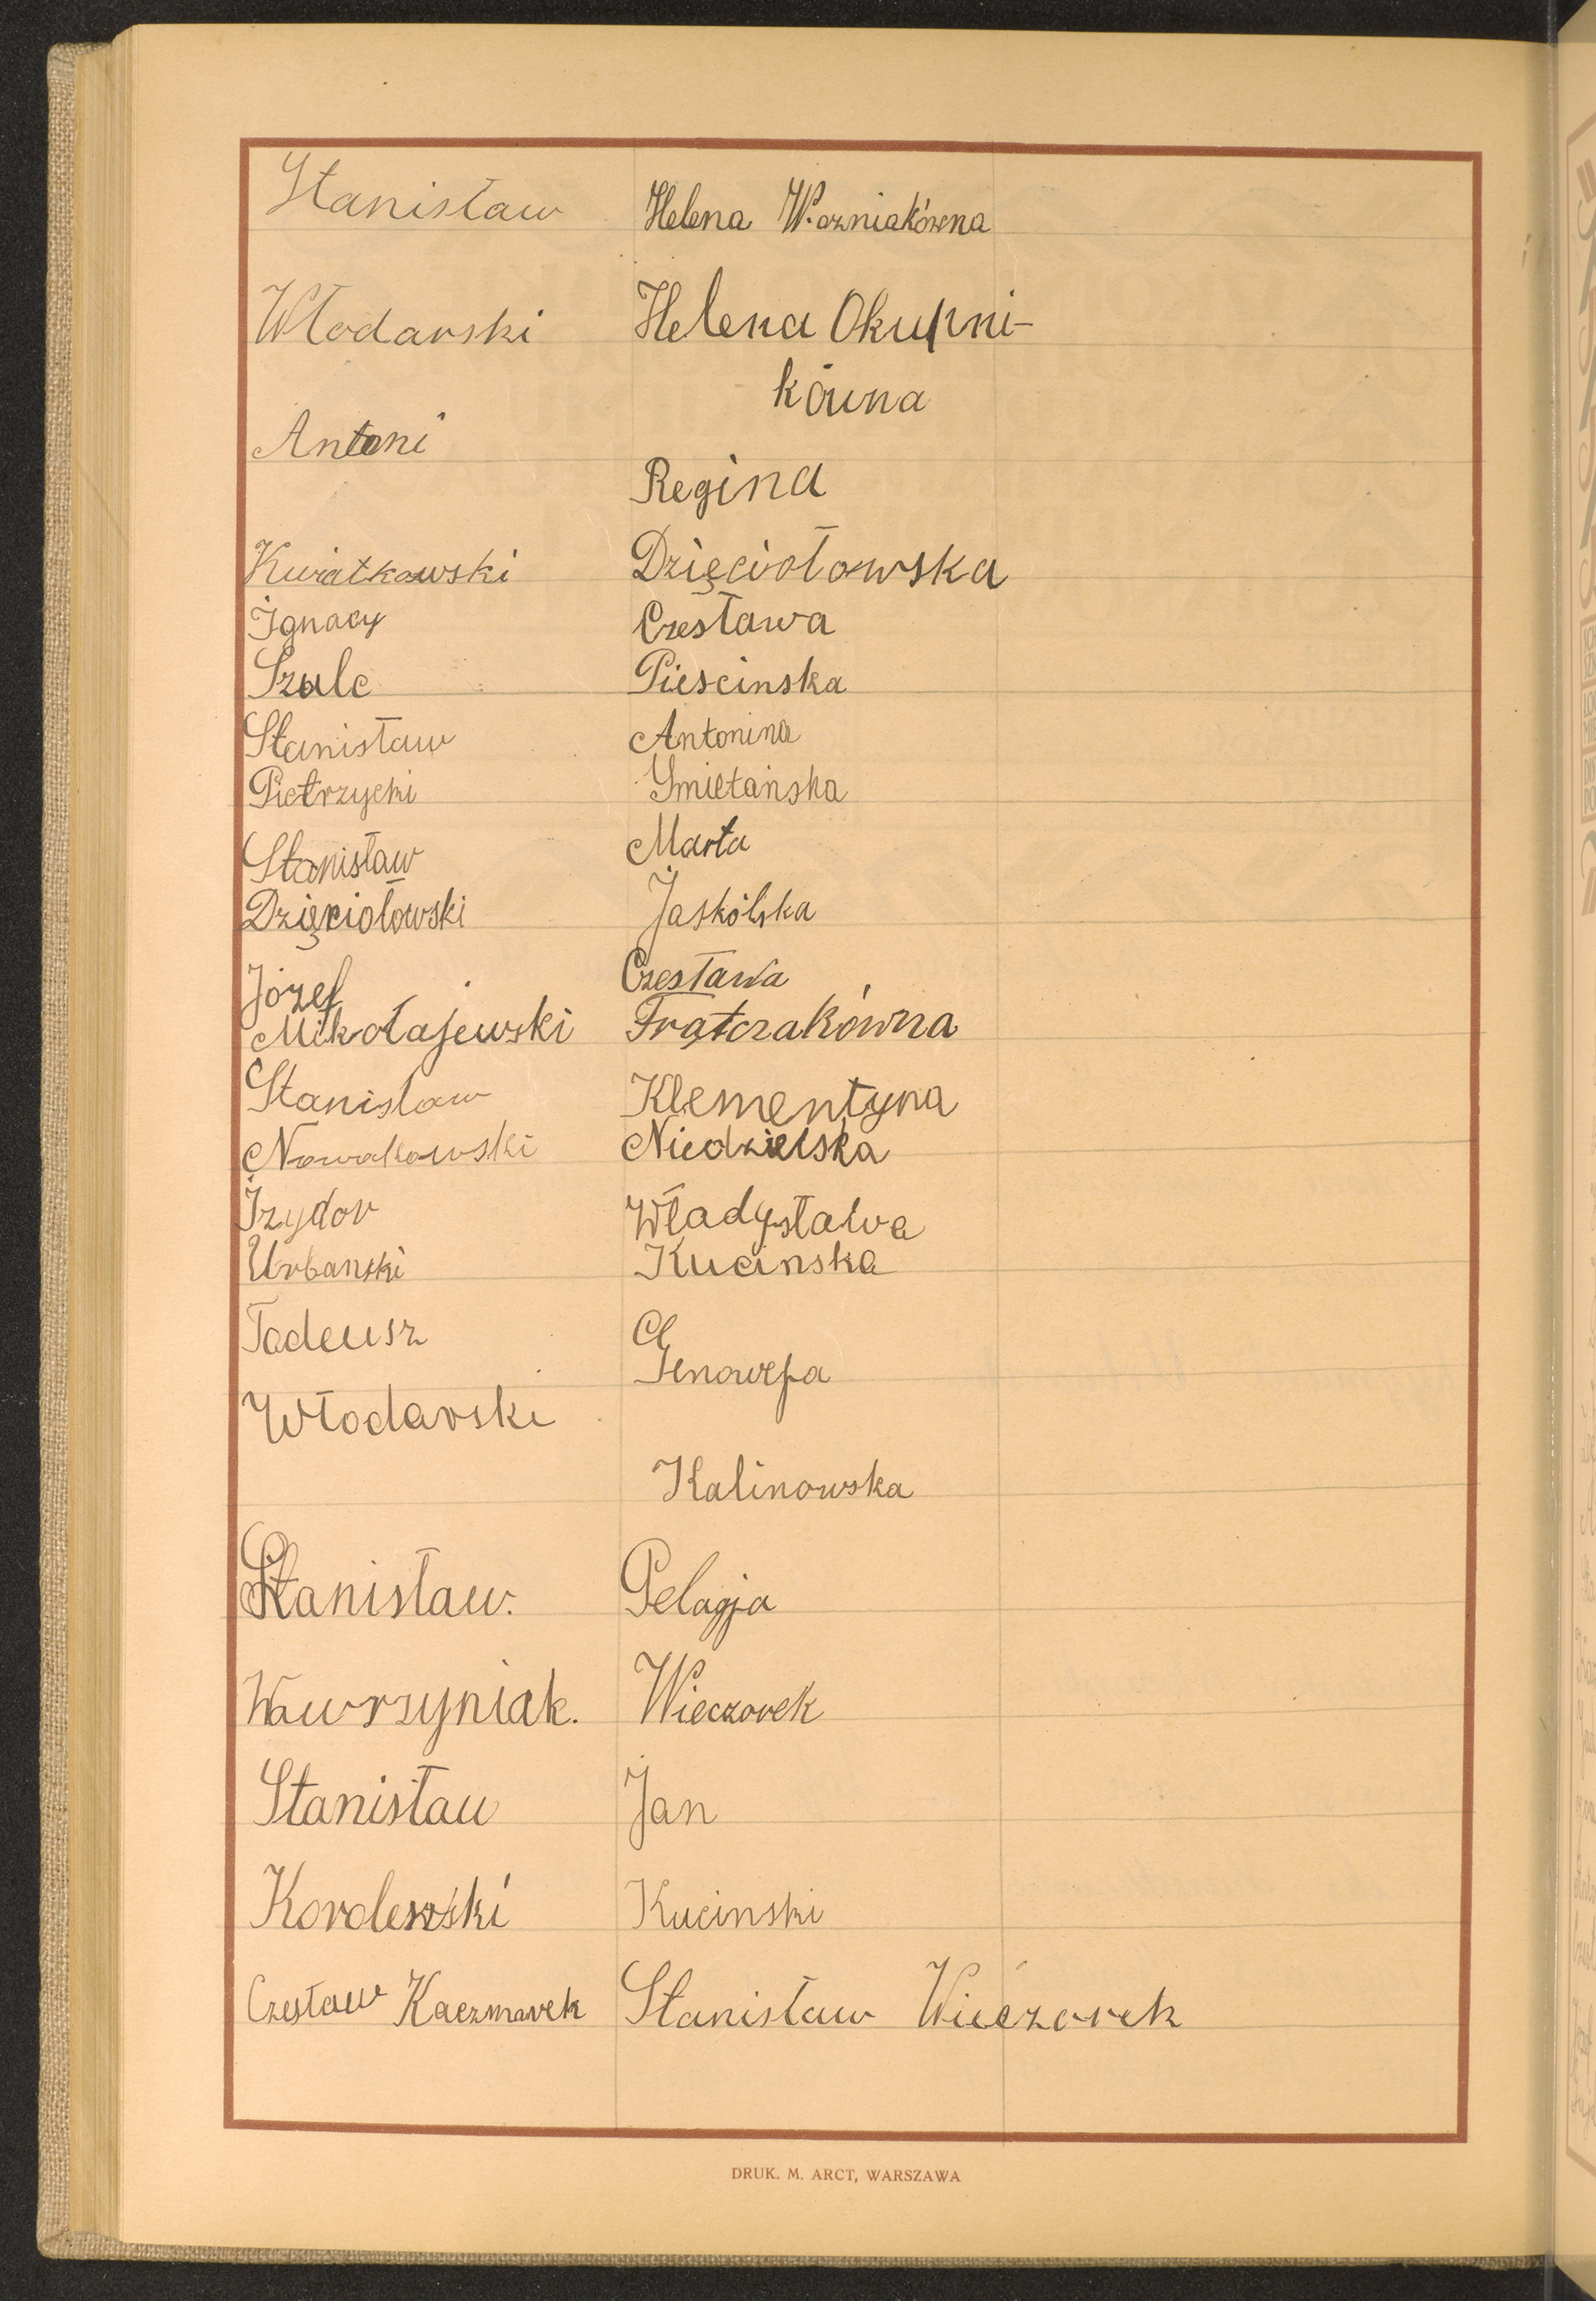 Stanisław
Włodarski
Antoni
Kwiatkowski
Ignacy
Szulc
Stanisław
Pietrzycki
Stanisław
Dzięciołowski
Józef
Mikołajewski
Stanisław
Nowakowski
Izydor
Urbanski
Tadeusz
Włodarski
Stanisław.
Wawrzyniak.
Stanisław
Korolewski
Czesław Kaczmarek
Helena Wozniakówna
Helena Okupni-
kówna
Regina
Dzięciołowska
Czesława
Piescinska
Antonina
Smietańska
Marta
Jaskólska
Czesława
Frątczakówna
Klementyna
Niedzielska
Władysława
Kucinska
Genowefa
Kalinowska
Pelagja
Wieczorek
Jan
Kucinski
Stanisław Wieczorek
DRUK. M. ARCT, WARSZAWA